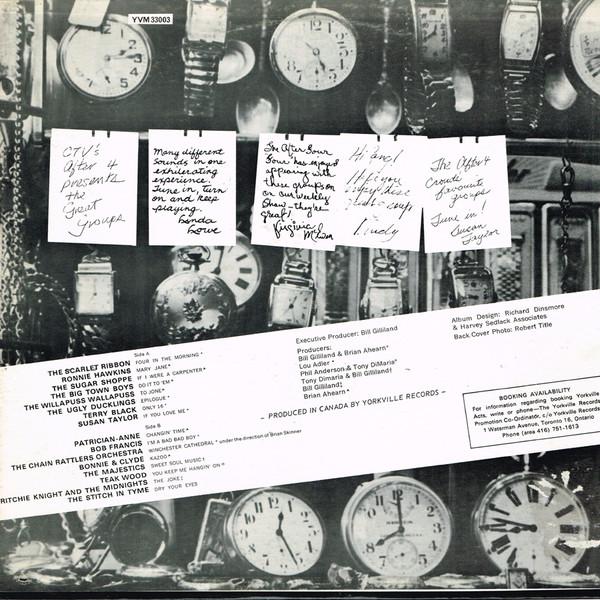 YVM 33003
CTV's
After 4
presents
the
Great
groups
Many different
sounds in one
exhilerating
experience.
Tune in, turn
on and keep
playing.
Londa
Lowe
The After Four
Four has enjoyed
appearing with
these groups on
our weekly
Show - they're
great!
Virginia
Hi and
Hi you
disc
Lindy
The After 4
Crowds
favourite
groups
Tune in!
Susan
Taylor
Side A
THE SCARLET RIBBON FOUR IN THE MORNING*
RONNIE HAWKINS MARY JANE*
THE SUGAR SHOPPE IF I WERE A CARPENTER*
THE BIG TOWN BOYS DO IT TO 'EM*
THE WILLAPUSS WALLAPUSS TO JONE*
THE UGLY DUCKLINGS EPILOGUE*
TERRY BLACK ONLY 16*
SUSAN TAYLOR IF YOU LOVE ME*
Side B
PATRICIAN-ANNE CHANGIN' TIME*
BOB FRANCIS I'M A BAD BAD BOY*
THE CHAIN RATTLERS ORCHESTRA WINCHESTER CATHEDRAL* under the direction of Brian Skinner
BONNIE & CLYDE KAZOO*
THE MAJESTICS SWEET SOUL MUSIC‡
TEAK WOOD YOU KEEP ME HANGIN' ON
RITCHIE KNIGHT AND THE MIDNIGHTS THE JOKE‡
THE STITCH IN TYME DRY YOUR EYES
Executive Producer: Bill Gilliland
Producers:
Bill Gilliland & Brian Ahearn*
Lou Adler*
Phil Anderson & Tony DiMaria*
Tony Dimaria & Bill Gilliland‡
Bill Gilliland‡
Brian Ahearn*
- PRODUCED IN CANADA BY YORKVILLE RECORDS -
Album Design: Richard Dinsmore
& Harvey Sedlack Associates
Back Cover Photo: Robert Title
BOOKING AVAILABILITY
For information regarding booking Yorkville
Acts, write or phone—The Yorkville Records
Promotion Co-Ordinator, c/o Yorkville Records
1 Westerman Avenue, Toronto 16, Ontario
Phone (area 416) 751-1613